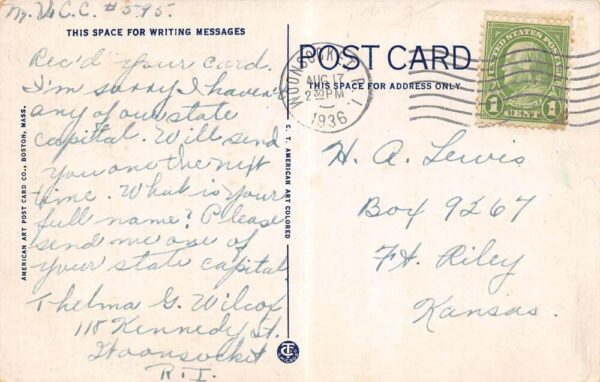 My. V. C. C. #595.
THIS SPACE FOR WRITING MESSAGES
Rec'd your card.
I'm sorry I haven't
any of our state
capital. Will send
you one the next
time. What is your
full name? Please
send me one of
your state capital
Thelma G. Wilcox
118 Kennedy St.
Woonsocket
R. I.
AMERICAN ART POST CARD CO., BOSTON, MASS.
C. T. AMERICAN ART COLORED
POST CARD
THIS SPACE FOR ADDRESS ONLY
WOONSOCKET, R. I.
AUG 17
2 30 PM
1936
UNITED STATES POSTAGE
1 CENT 1
H. A. Lewis
Box 9267
Ft. Riley
Kansas.